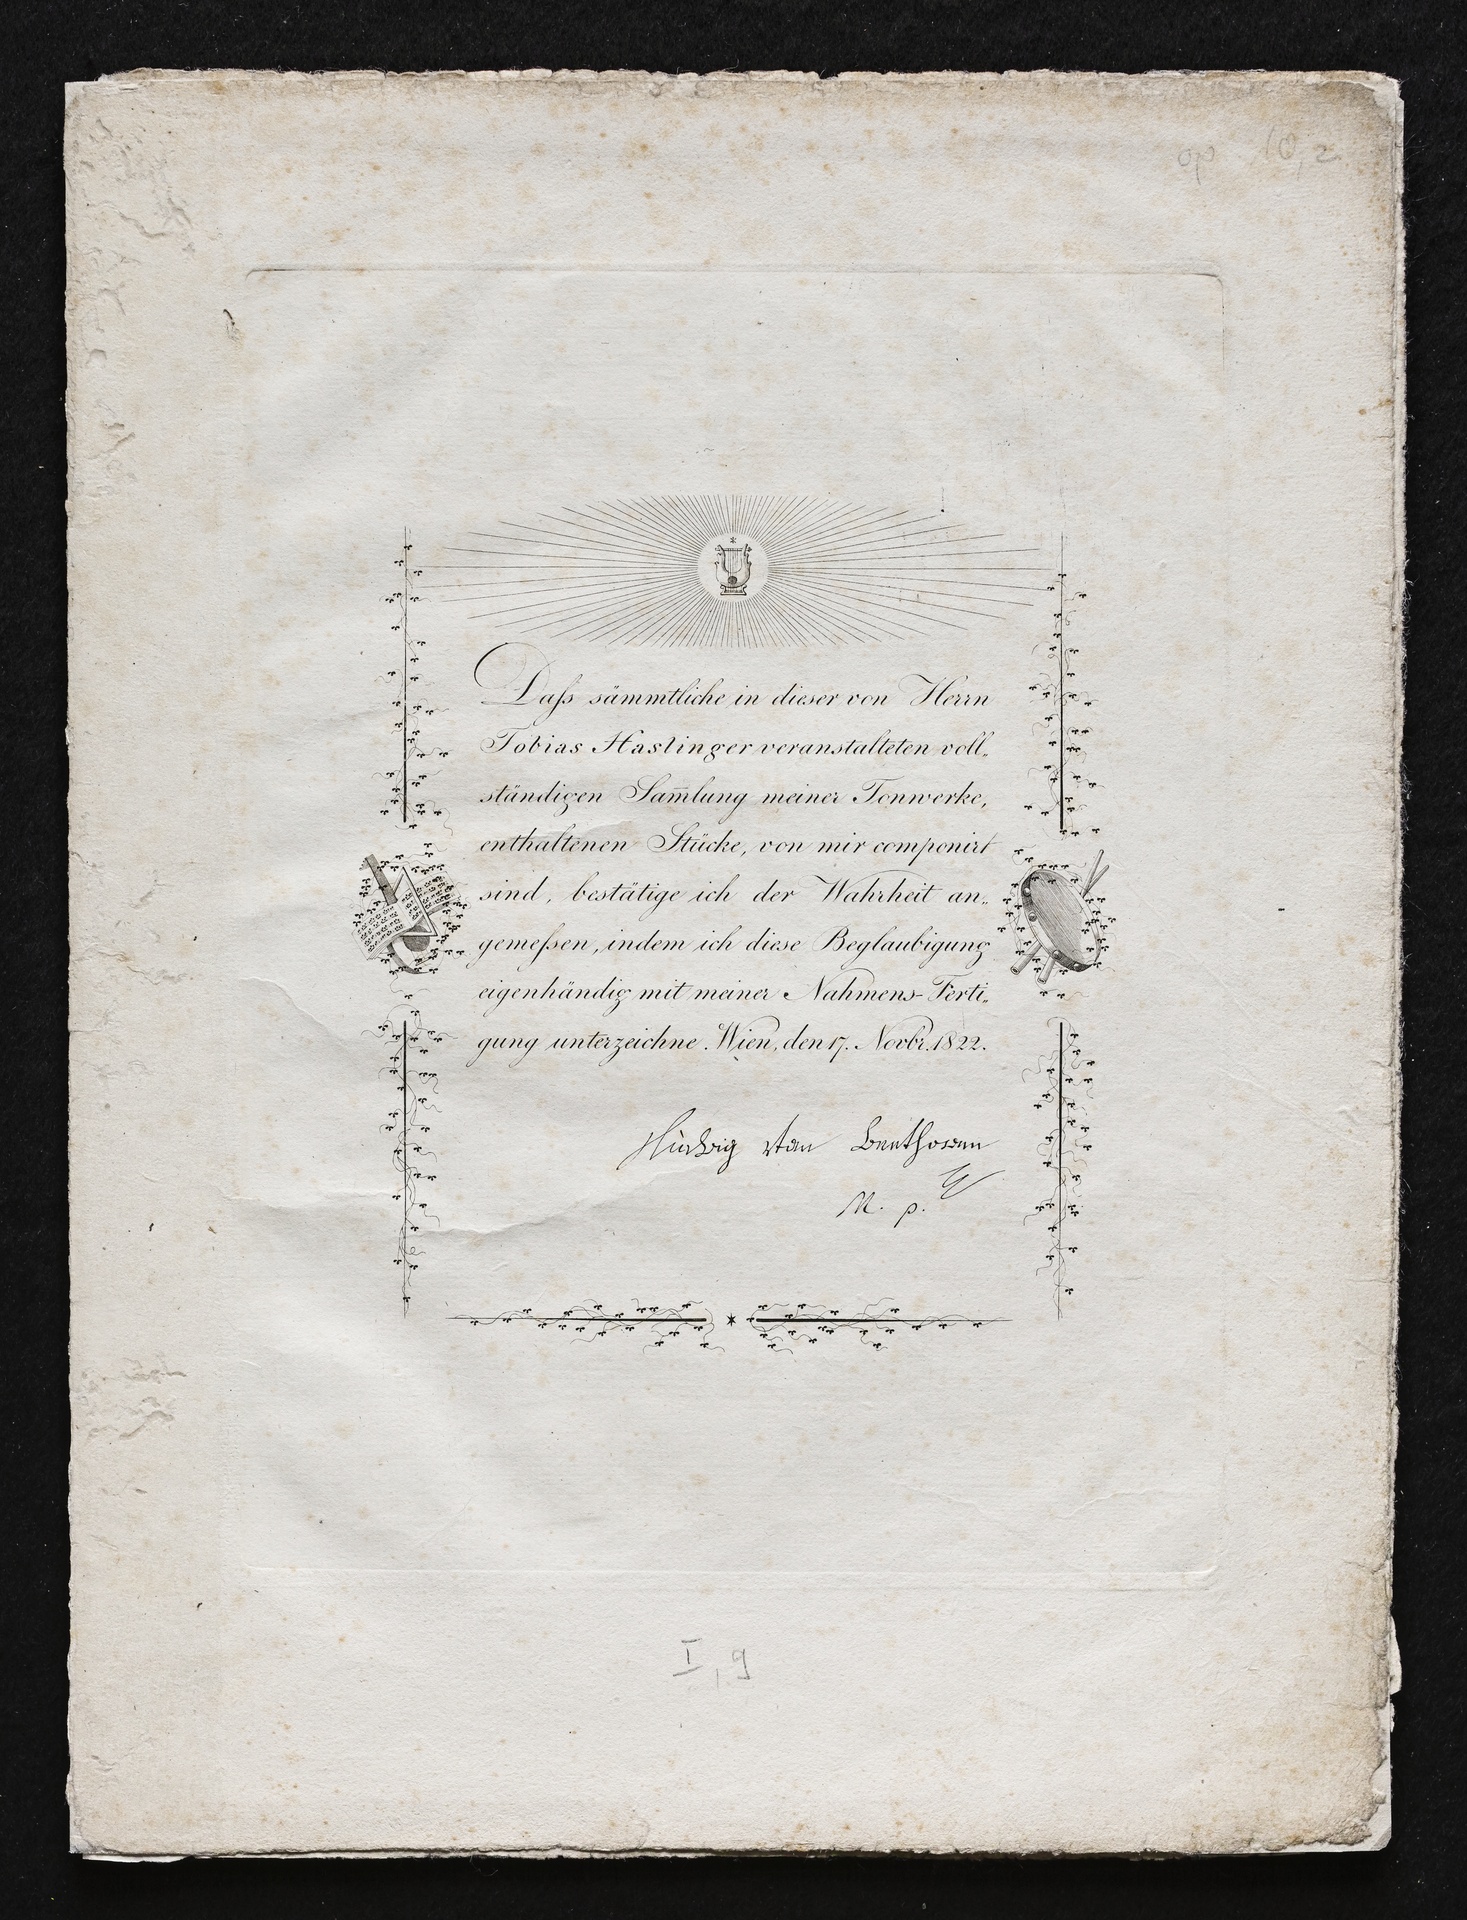 op 10, 2.
Daſs sämmtliche in dieser von Herrn
Tobias Haslinger veranstalteten voll„
ständigen Sam̄lung meiner Tonwerke,
enthaltenen Stücke, von mir componirt
sind, bestätige ich der Wahrheit an„
gemeſsen, indem ich diese Beglaubigung
eigenhändig mit meiner Nahmens-Ferti„
gung unterzeichne. Wien, den 17. Novbr. 1822.
Ludwig van Beethoven
M. p.
I, 9